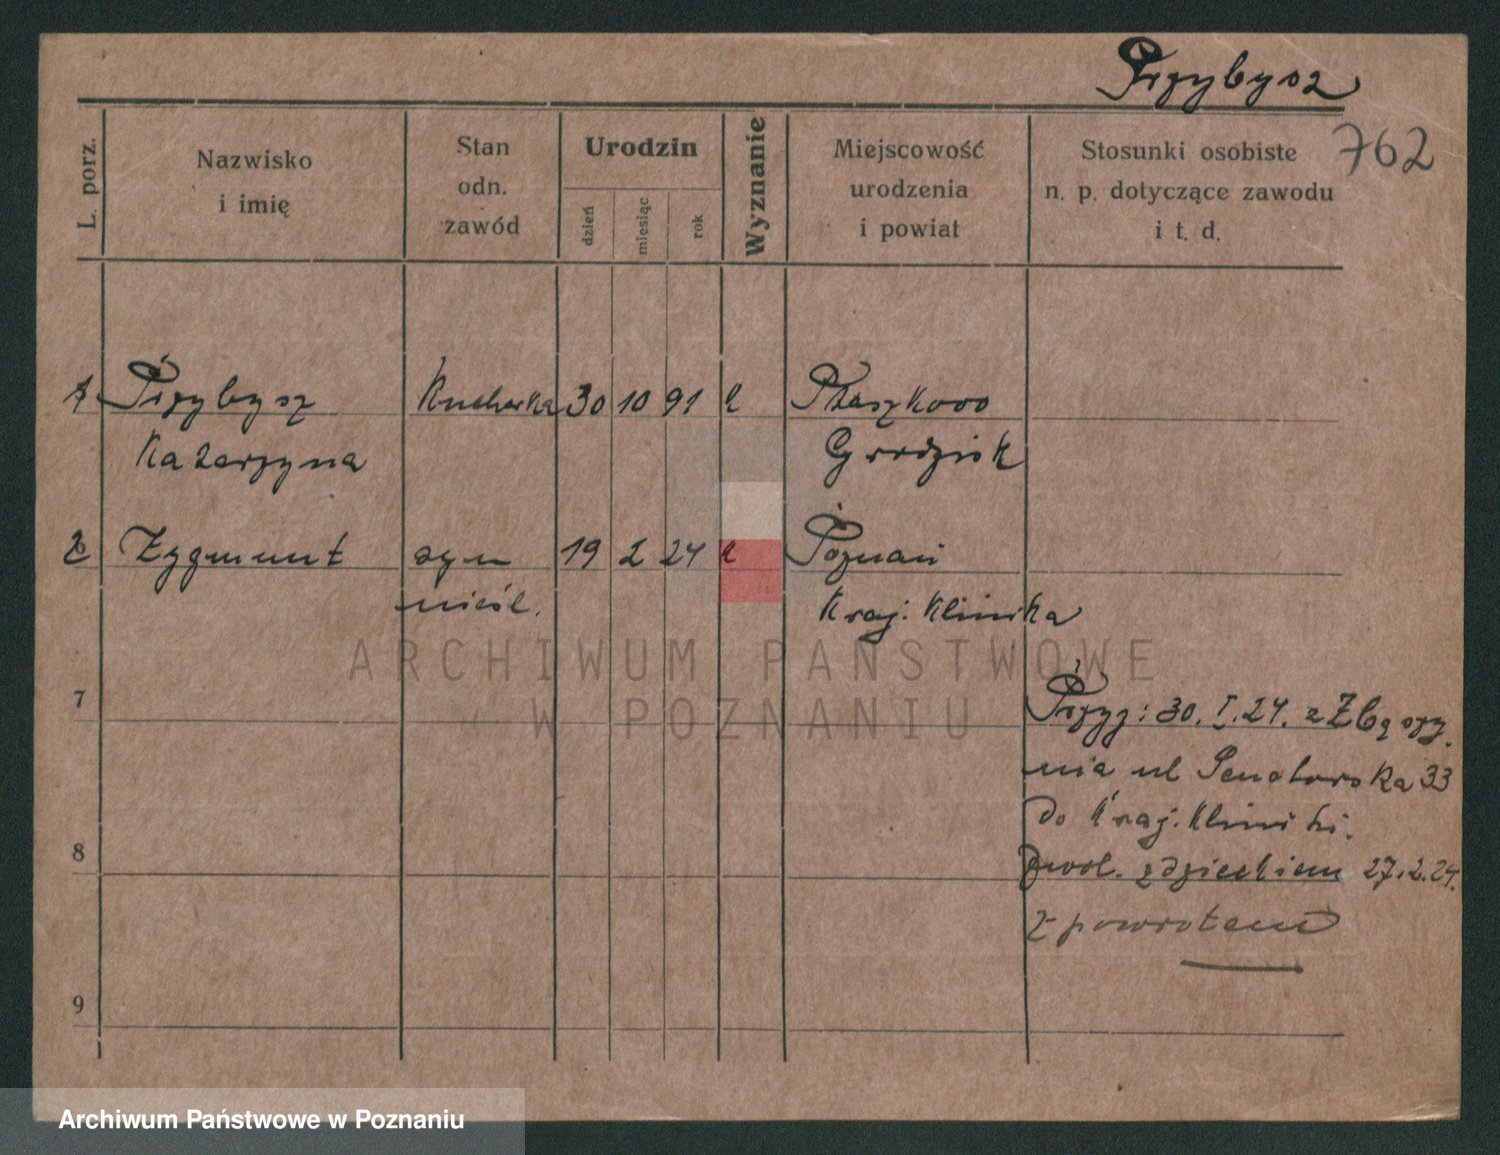 Przybysz
762
L. porz.
Nazwisko
i imię
Stan
odn.
zawód
Urodzin
dzień
miesiąc
rok
Wyznanie
Miejscowość
urodzenia
i powiat
Stosunki osobiste
n. p. dotyczące zawodu
i t. d.
Przybysz Kucharka 30 10 91 k Ptaszkowo
Katarzyna Grodzisk
2 Zygmunt syn 19 2 24 k Poznań
nieśl. Kraj. Klinika
ARCHIWUM PAŃSTWOWE
W POZNANIU
7
Przyj: 30. I. 24. z Zbąszy
nia ul Senatorska 33
do Kraj. Kliniki.
8
zwol. z dzieckiem 27.2.24.
z powrotem
9
Archiwum Państwowe w Poznaniu